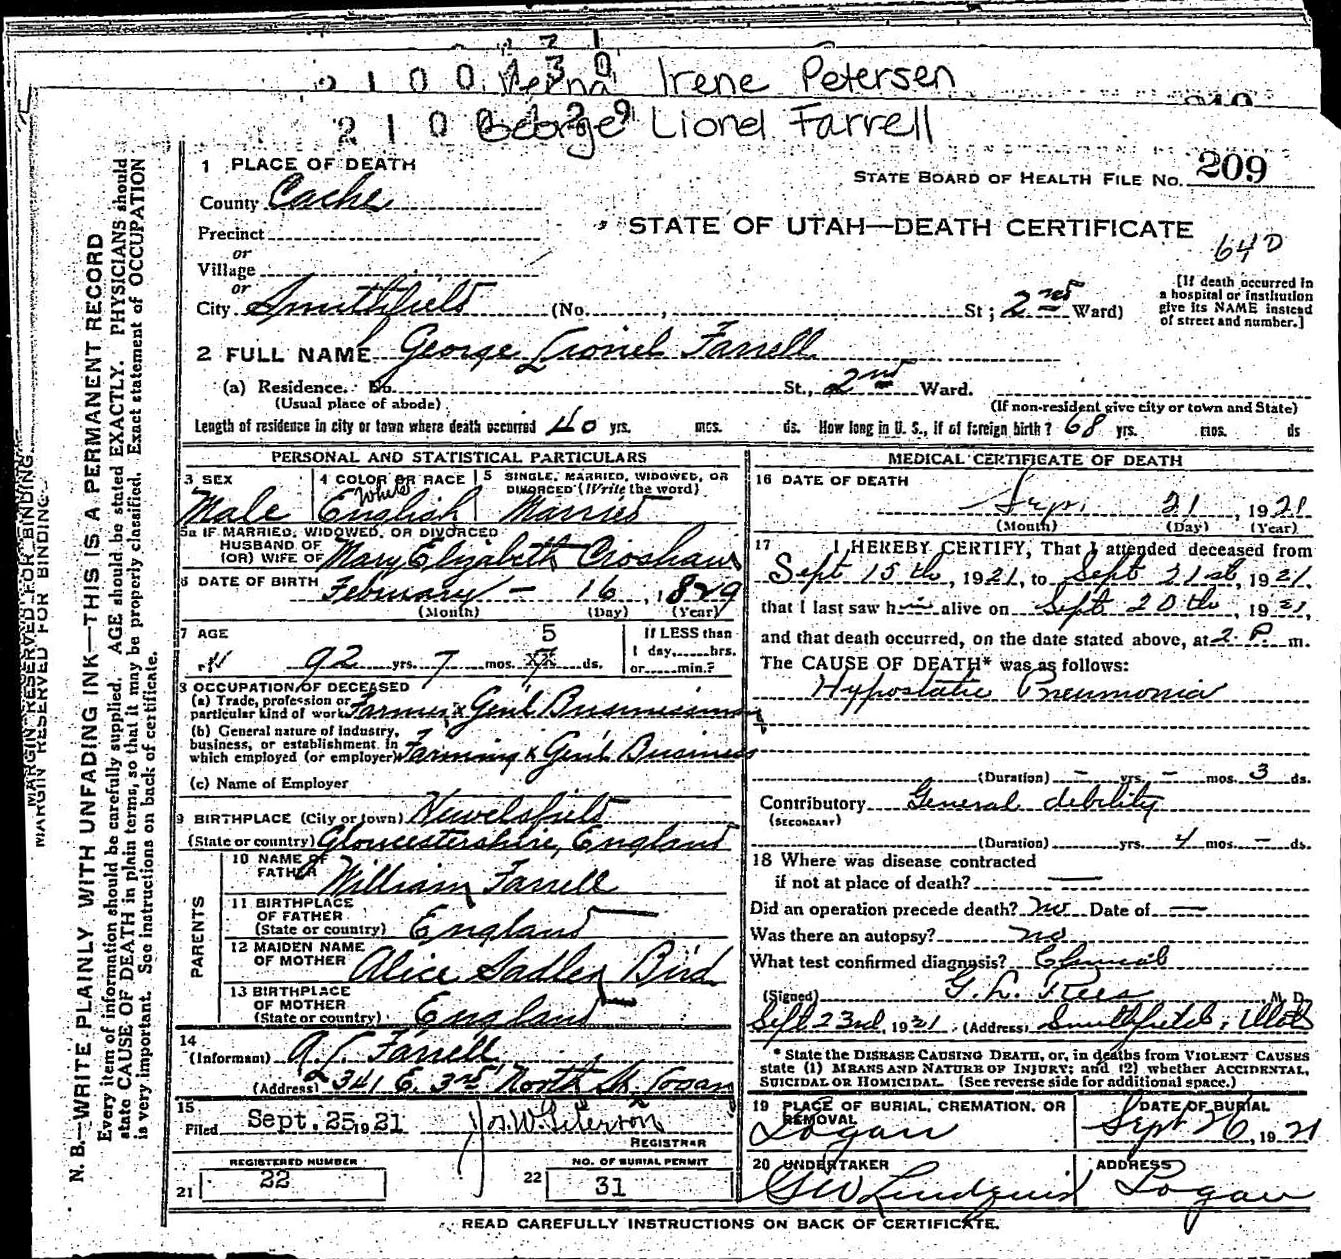 2100130
Verna Irene Petersen
2100129
George Lionel Farrell
MARGIN RESERVED FOR BINDING
N. B.—WRITE PLAINLY WITH UNFADING INK—THIS IS A PERMANENT RECORD
Every item of information should be carefully supplied. AGE should be stated EXACTLY. PHYSICIANS should
state CAUSE OF DEATH in plain terms, so that it may be properly classified. Exact statement of OCCUPATION
is very important. See instructions on back of certificate.
1 PLACE OF DEATH
STATE BOARD OF HEALTH FILE NO. 209
County Cache
STATE OF UTAH—DEATH CERTIFICATE
Precinct
64D
or
Village
or
City Smithfield (No. , St; 2nd Ward)
[If death occurred in
a hospital or institution
give its NAME instead
of street and number.]
2 FULL NAME George Lionel Farrell
(a) Residence. No. St., 2nd Ward.
(Usual place of abode) (If non-resident give city or town and State)
Length of residence in city or town where death occurred 40 yrs. mos. ds. How long in U. S., if of foreign birth? 68 yrs. mos. ds
PERSONAL AND STATISTICAL PARTICULARS
3 SEX
Male
4 COLOR OR RACE
White
English
5 SINGLE, MARRIED, WIDOWED, OR
DIVORCED (Write the word)
Married
5a IF MARRIED, WIDOWED, OR DIVORCED
HUSBAND OF
(OR) WIFE OF Mary Elizabeth Croshaw
6 DATE OF BIRTH February – 16, 1829
(Month) (Day) (Year)
7 AGE
92 yrs. 7 mos. 5 ds.
If LESS than
1 day, hrs.
or min.?
8 OCCUPATION OF DECEASED
(a) Trade, profession or
particular kind of work Farmer & Gen'l Businessman
(b) General nature of industry,
business, or establishment in
which employed (or employer) Farming & Gen'l Business
(c) Name of Employer
9 BIRTHPLACE (City or town)
(State or country) Gloucestershire, England
PARENTS
10 NAME OF
FATHER William Farrell
11 BIRTHPLACE
OF FATHER
(State or country) England
12 MAIDEN NAME
OF MOTHER Alice Sadler Bird
13 BIRTHPLACE
OF MOTHER
(State or country) England
14
(Informant) Farrell
(Address) 341 E. 3rd North St. Logan
15
Filed Sept. 25, 1921 Jos. W. Peterson
REGISTRAR
REGISTERED NUMBER
21 22
NO. OF BURIAL PERMIT
22 31
MEDICAL CERTIFICATE OF DEATH
16 DATE OF DEATH
Sep. 21, 1921
(Month) (Day) (Year)
17 I HEREBY CERTIFY, That I attended deceased from
Sept 15th, 1921, to Sept 21st, 1921,
that I last saw him alive on Sept 20th, 1921,
and that death occurred, on the date stated above, at 2 P. m.
The CAUSE OF DEATH* was as follows:
Hypostatic Pneumonia
(Duration) – yrs. – mos. 3 ds.
Contributory General debility
(SECONDARY)
(Duration) yrs. 4 mos. – ds.
18 Where was disease contracted
if not at place of death? —
Did an operation precede death? no Date of —
Was there an autopsy? no
What test confirmed diagnosis? Clinical
(Signed) G. L. Rees M. D.
Sept 23rd, 1921. (Address) Smithfield, Utah
* State the DISEASE CAUSING DEATH, or, in deaths from VIOLENT CAUSES
state (1) MEANS AND NATURE OF INJURY; and (2) whether ACCIDENTAL,
SUICIDAL OR HOMICIDAL. (See reverse side for additional space.)
19 PLACE OF BURIAL, CREMATION, OR
REMOVAL
Logan
DATE OF BURIAL
Sept 26, 1921
20 UNDERTAKER
G W Lindquist
ADDRESS
Logan
READ CAREFULLY INSTRUCTIONS ON BACK OF CERTIFICATE.